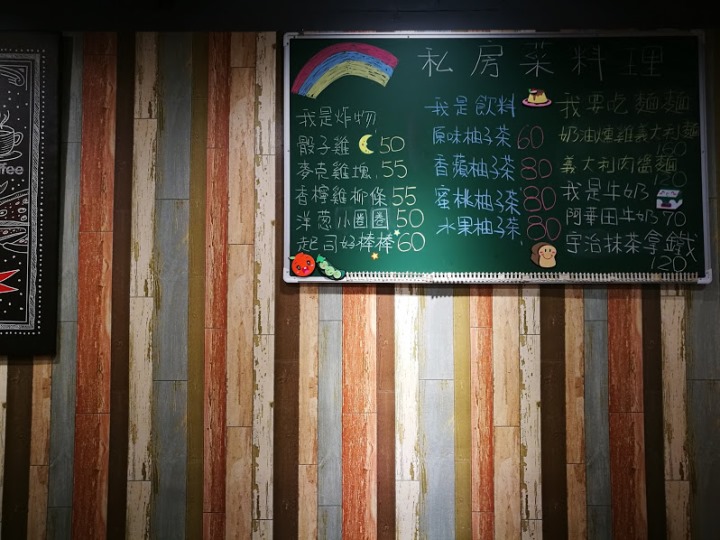 私房菜料理
我是炸物
骰子雞 50
麥克雞塊 55
香檸雞柳條 55
洋蔥小圈圈 50
起司好棒棒 60
我是飲料
原味柚子茶 60
香蘋柚子茶 80
蜜桃柚子茶 80
水果柚子茶 80
我要吃麵麵
奶油燻雞義大利麵
160
義大利肉醬麵
我是牛奶
阿華田牛奶 70
宇治抹茶拿鐵
120
ffee